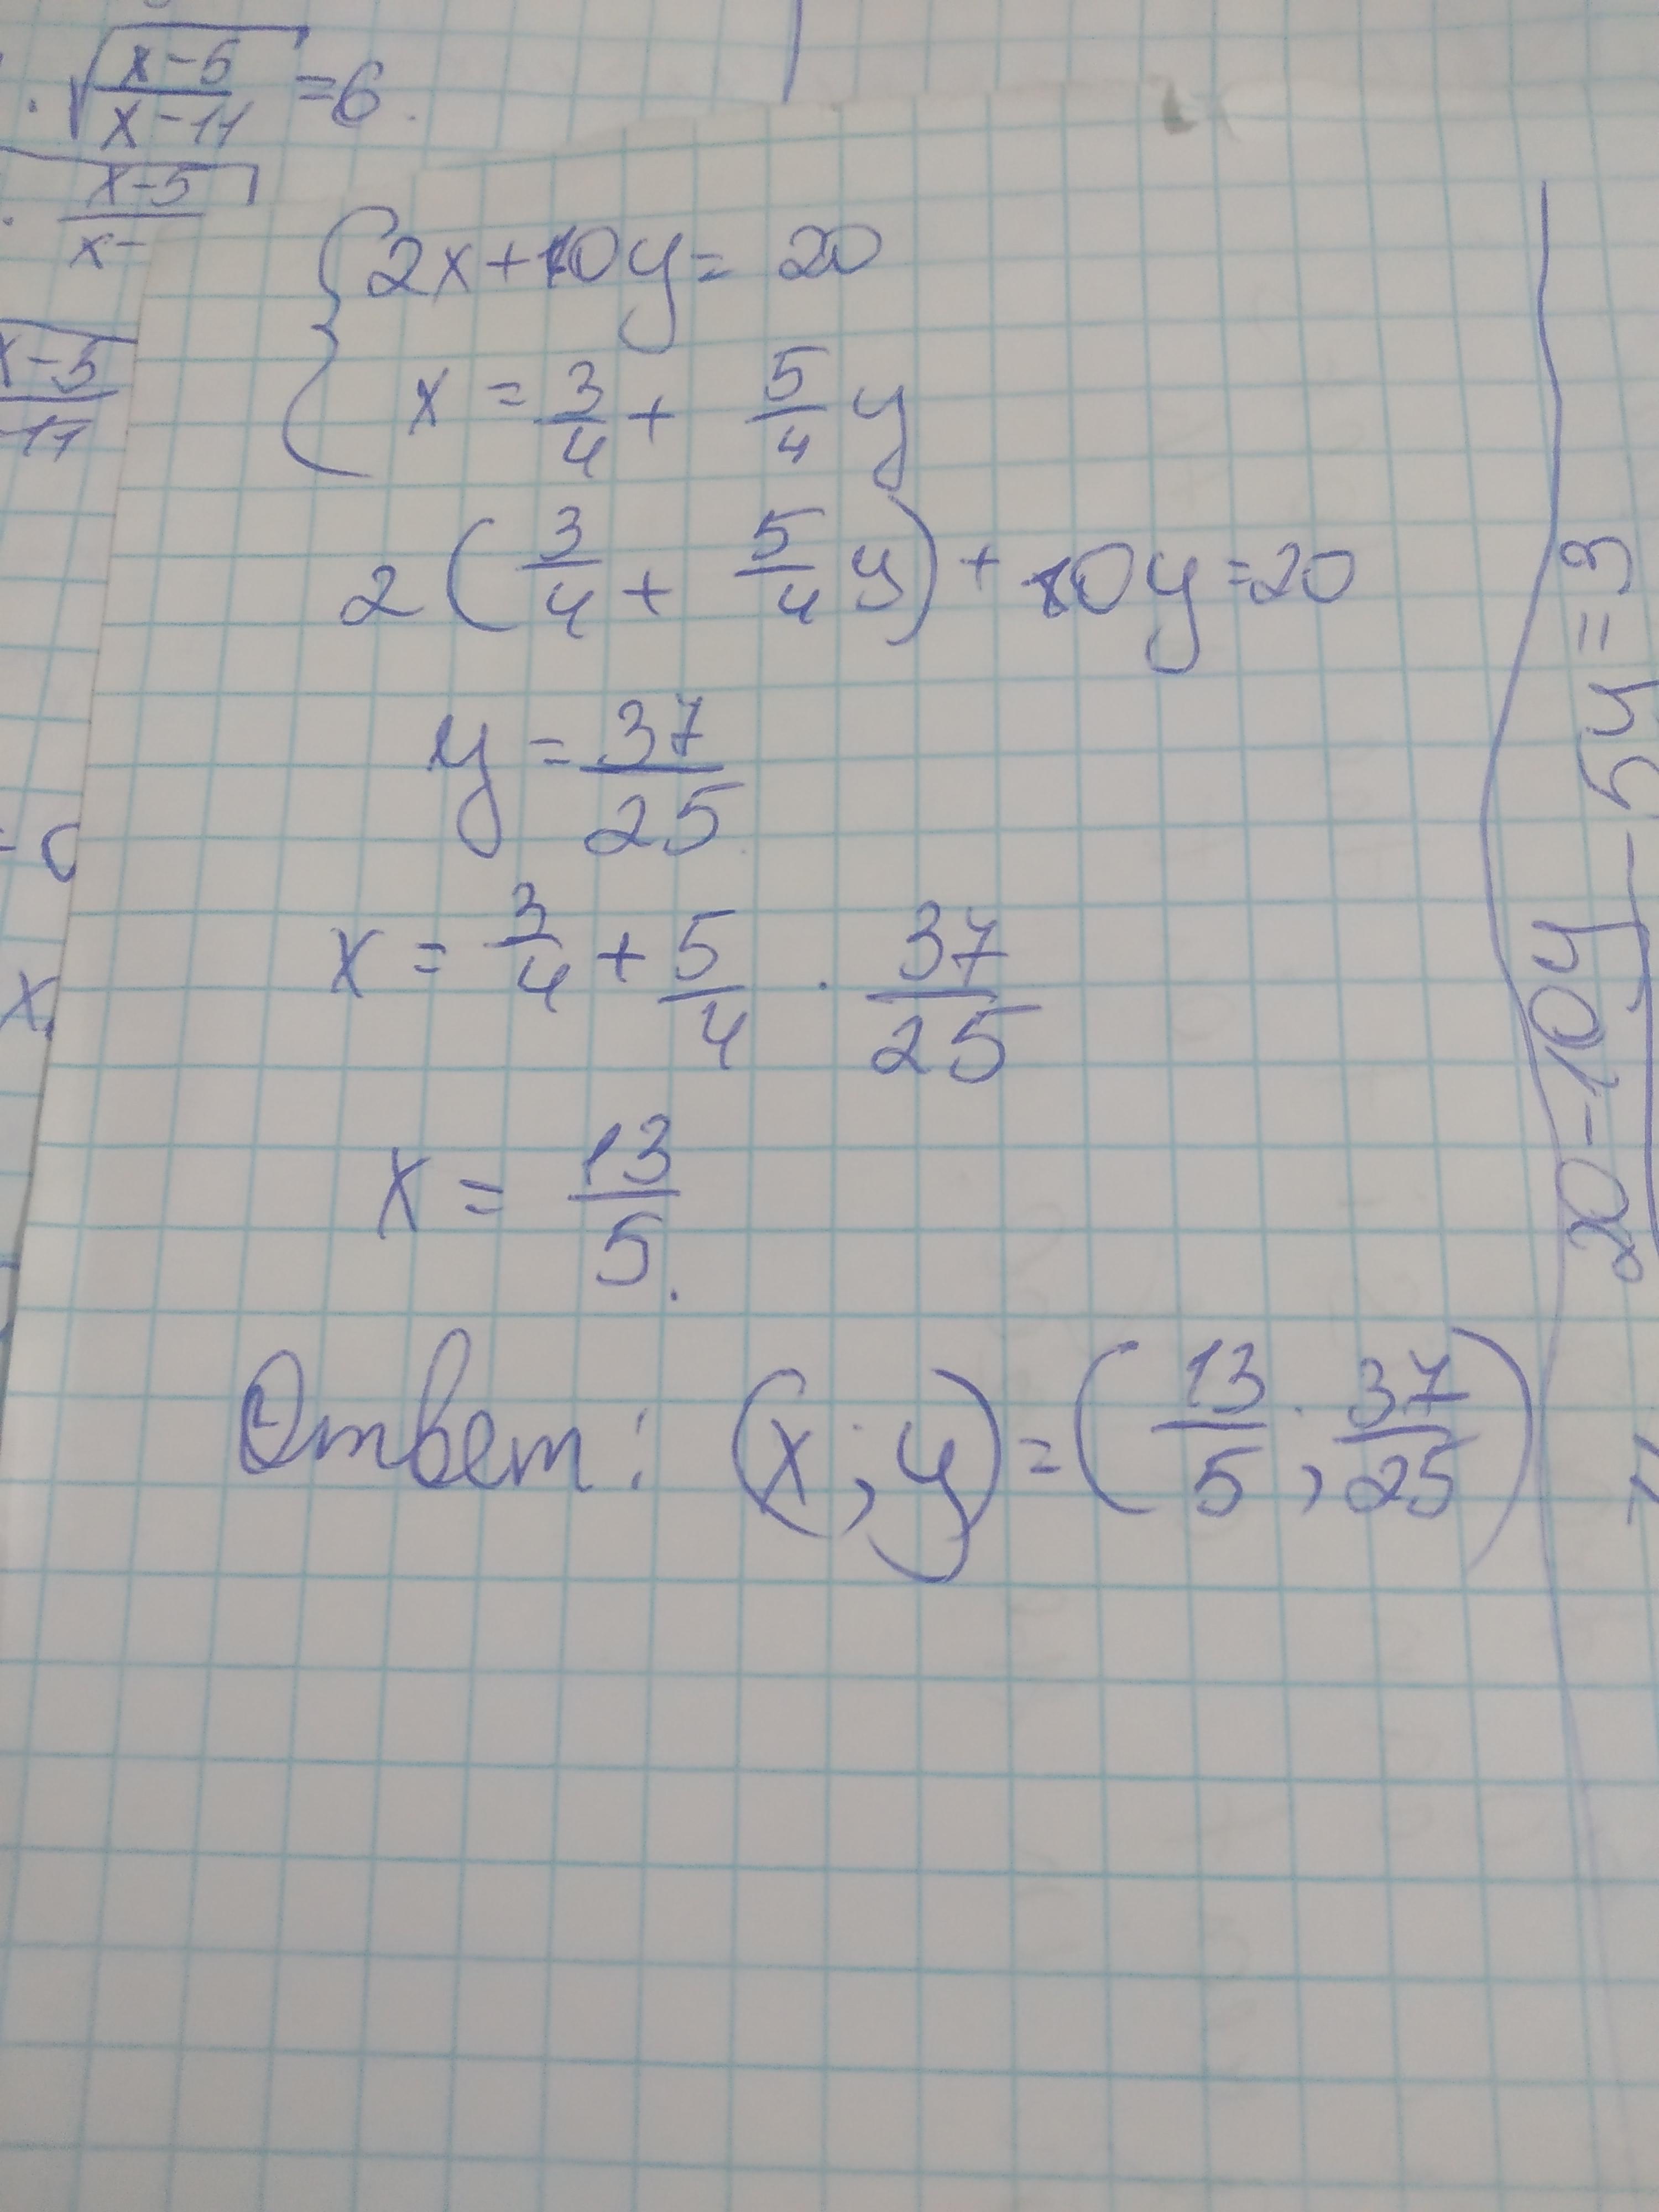 . √(x-5)/(x-11) = 6.
. (x-5)/(x-
x-5
-11
{ 2x+10y = 20
x = 3/4 + 5/4 y
2(3/4 + 5/4 y) + 10y = 20
y = 37/25
x = 3/4 + 5/4 · 37/25
x = 13/5.
Ответ: (x; y) = (13/5; 37/25)
x
20-10y
-5y=3